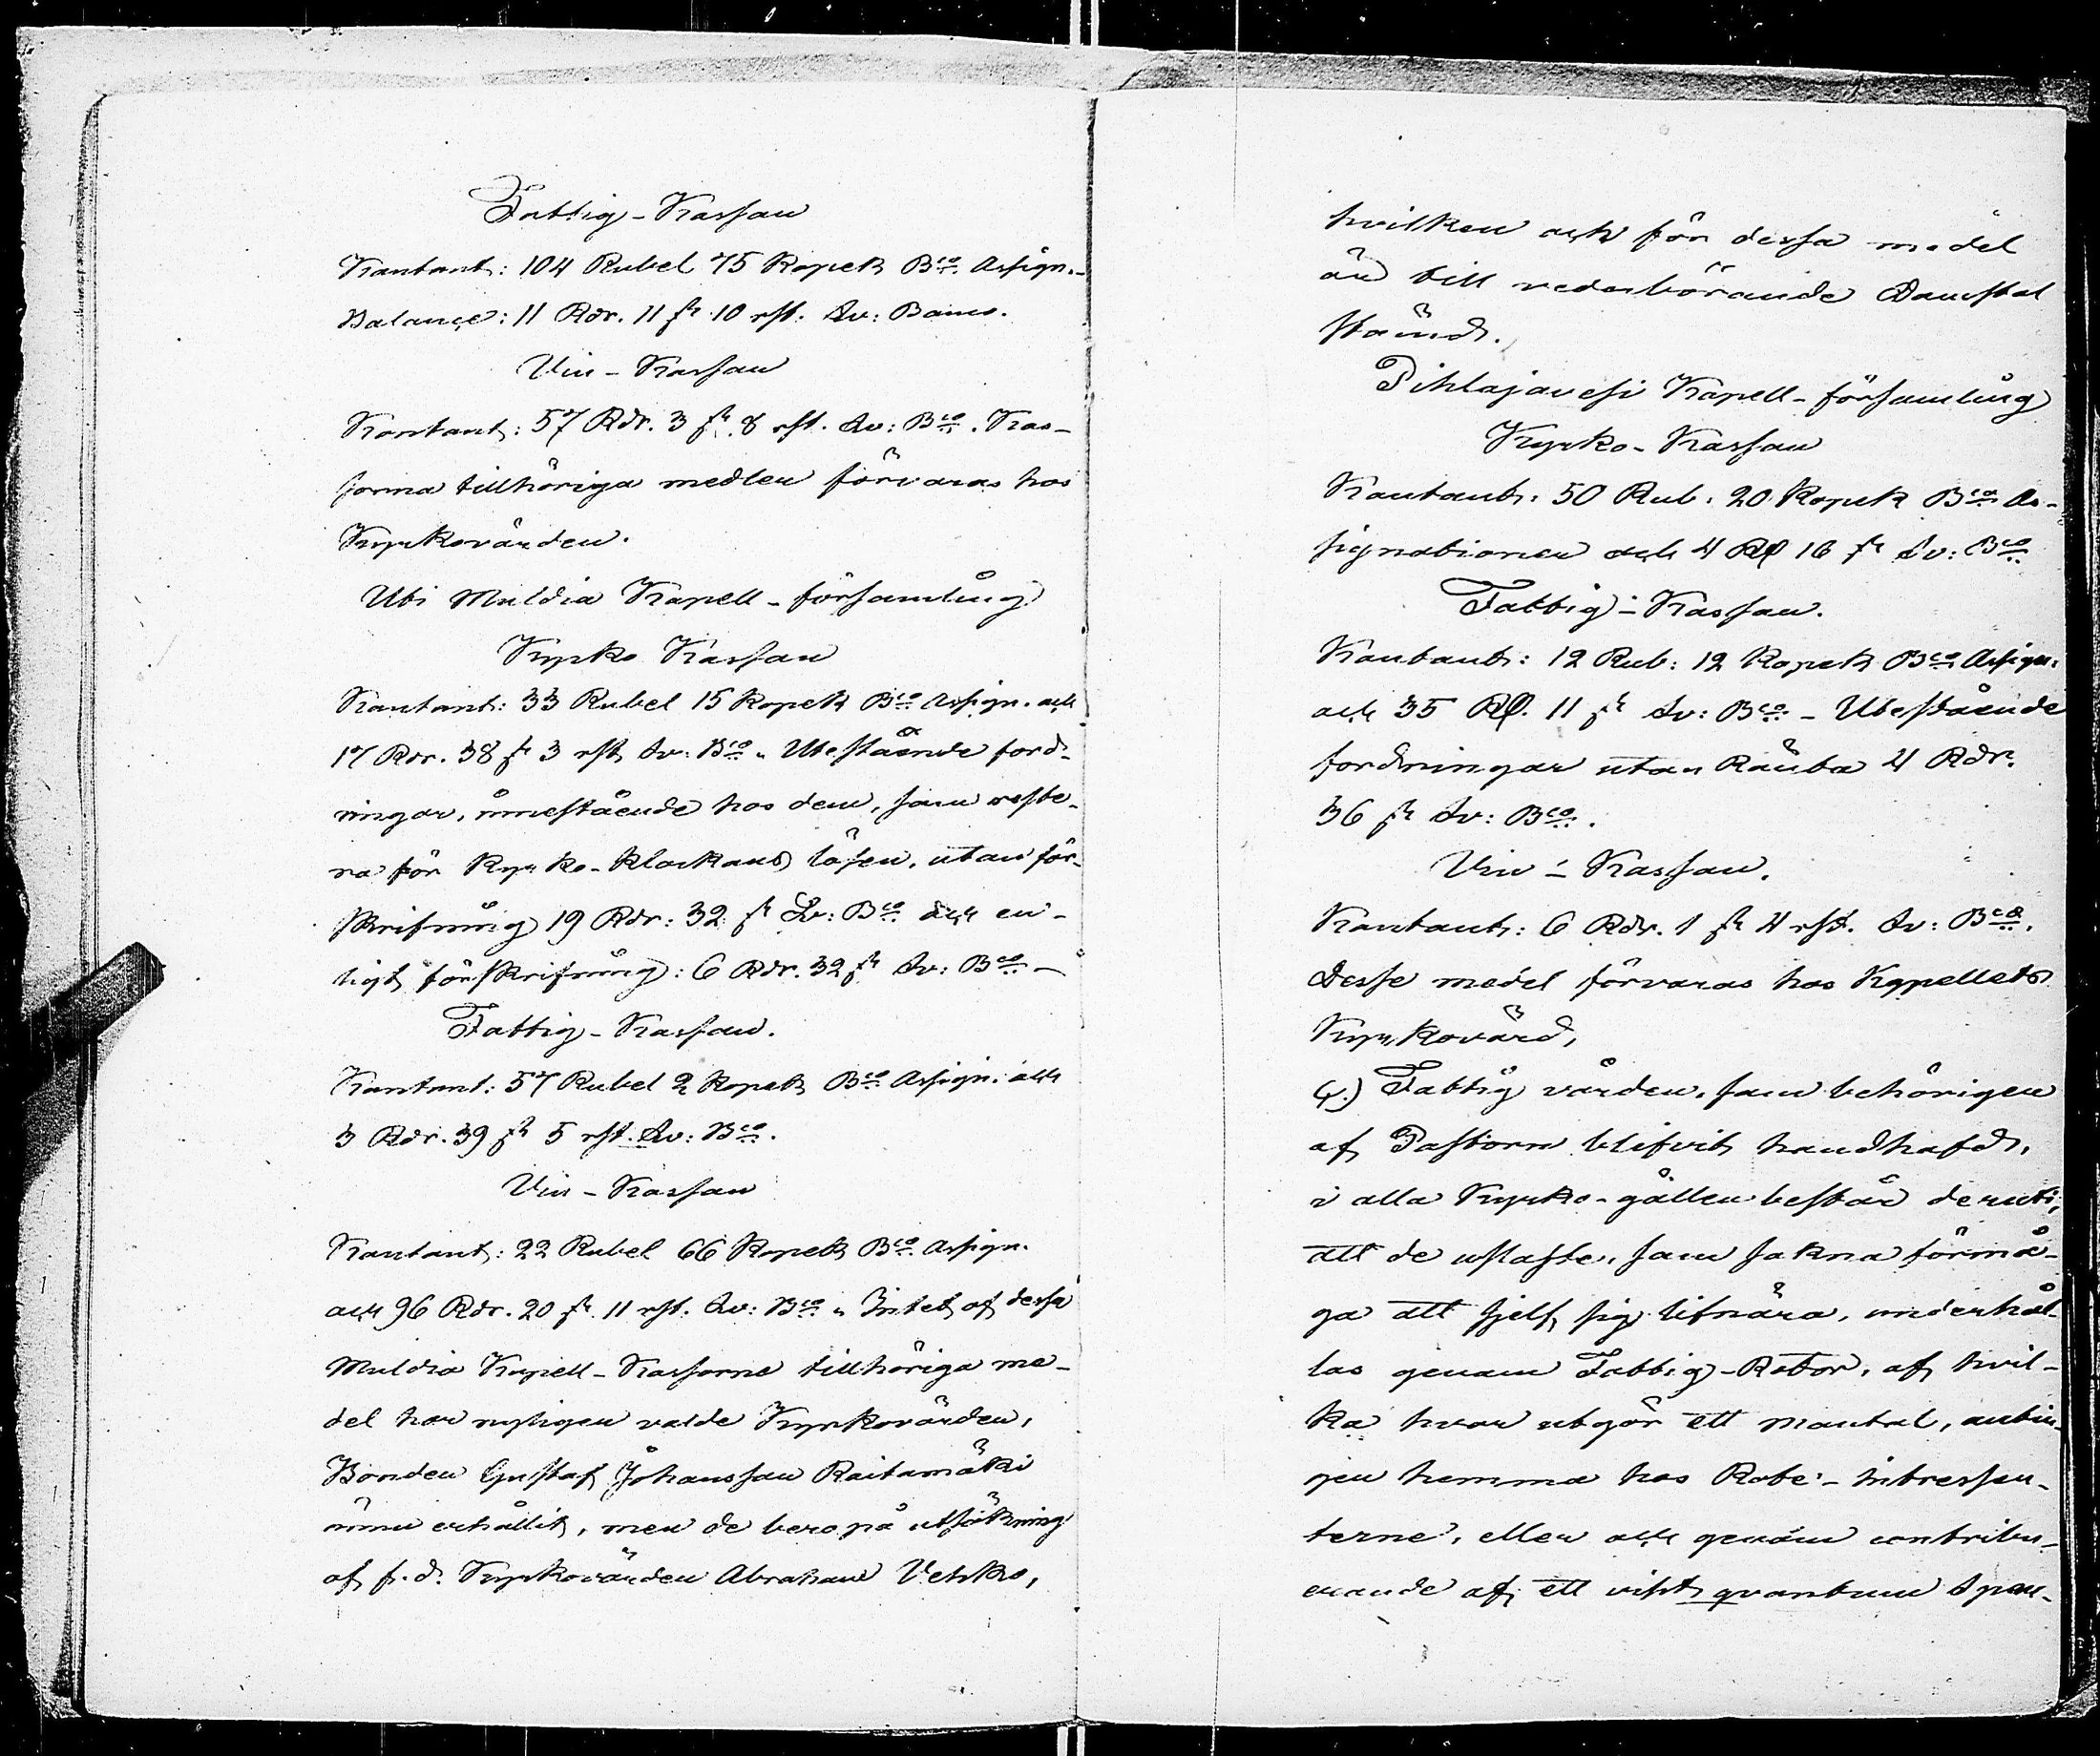 Fattig-Kassan
Kontant: 104 Rubel 75 Kopek Bco Assign.
Balançe: 11 Rdr. 11 sk 10 rst. Sv: Banco.
Vin-Kassan
Kontant: 57 Rdr. 3 sk. 8 rst. Sv: Bco. Kas-
sorna tillhöriga medlen förvaras hos
Kyrkovärden.
Uti Muldia Kapell-församling
Kyrko Kassan
Kontant: 33 Rubel 15 Kopek Bco Assign. och
17 Rdr. 38 sk 3 rst, Sv: Bco. Utestående ford-
ringar, innestående hos dem, som reste-
ra för Kyrko-klockans lösen, utan för-
skrifning 19 Rdr: 32 sk Sv: Bco och en-
ligt förskrifning: 6 Rdr. 32 sk Sv: Bco -
Fattig-Kassan.
Kontant: 57 Rubel 2 Kopek Bco Assign. och
3 Rdr. 39 sk 5 rst. Sv: Bco.
Vin-Kassan
Kontant: 22 Rubel 66 Kopek Bco Assign.
och 96 Rdr. 20 sk. 11 rst. Sv: Bco. Intet af dessa
Muldia Kapell-Kassorne tillhöriga me-
del har nyligen valde Kyrkovärden,
Bonden Gustaf Johansson Raitamäki
ännu erhållit, men de bero på utsökning
af f.d. Kyrkovärden Abraham Vehko,
hvilken ock för dessa medel
är till vederbörande Domstol
stämd.
Pihlajavesi Kapell-församling
Kyrko-Kassan
Kontant: 50 Rub: 20 Kopek Bco As-
signationer och 4 Rd 16 sk Sv: Bco
Fattig-Kassan.
Kontant: 12 Rub: 12 Kopek Bco Assign.
och 35 Rd. 11 sk Sv: Bco - Utestående
fordringar utan Ränta 4 Rdr.
36 sk Sv: Bco.
Vin-Kassan.
Kontant: 6 Rdr. 1 sk 4 rst. Sv: Bco.
Desse medel förvaras hos Kapellets
Kyrkovärd,
Fattig vården, som behörigen
af Pastorn blifvit handhafd,
i alla Kyrko-gällen består deruti,
att de uslaste, som sakna förmå-
ga att sjelf sig lifnära, underhål-
las genom Fattig-Rotor, af hvil-
ka hvar utgör ett mantal, antin-
gen hemma hos Rote-intressen-
terne, eller och genom contribu-
erande af ett visst qvantum Span-